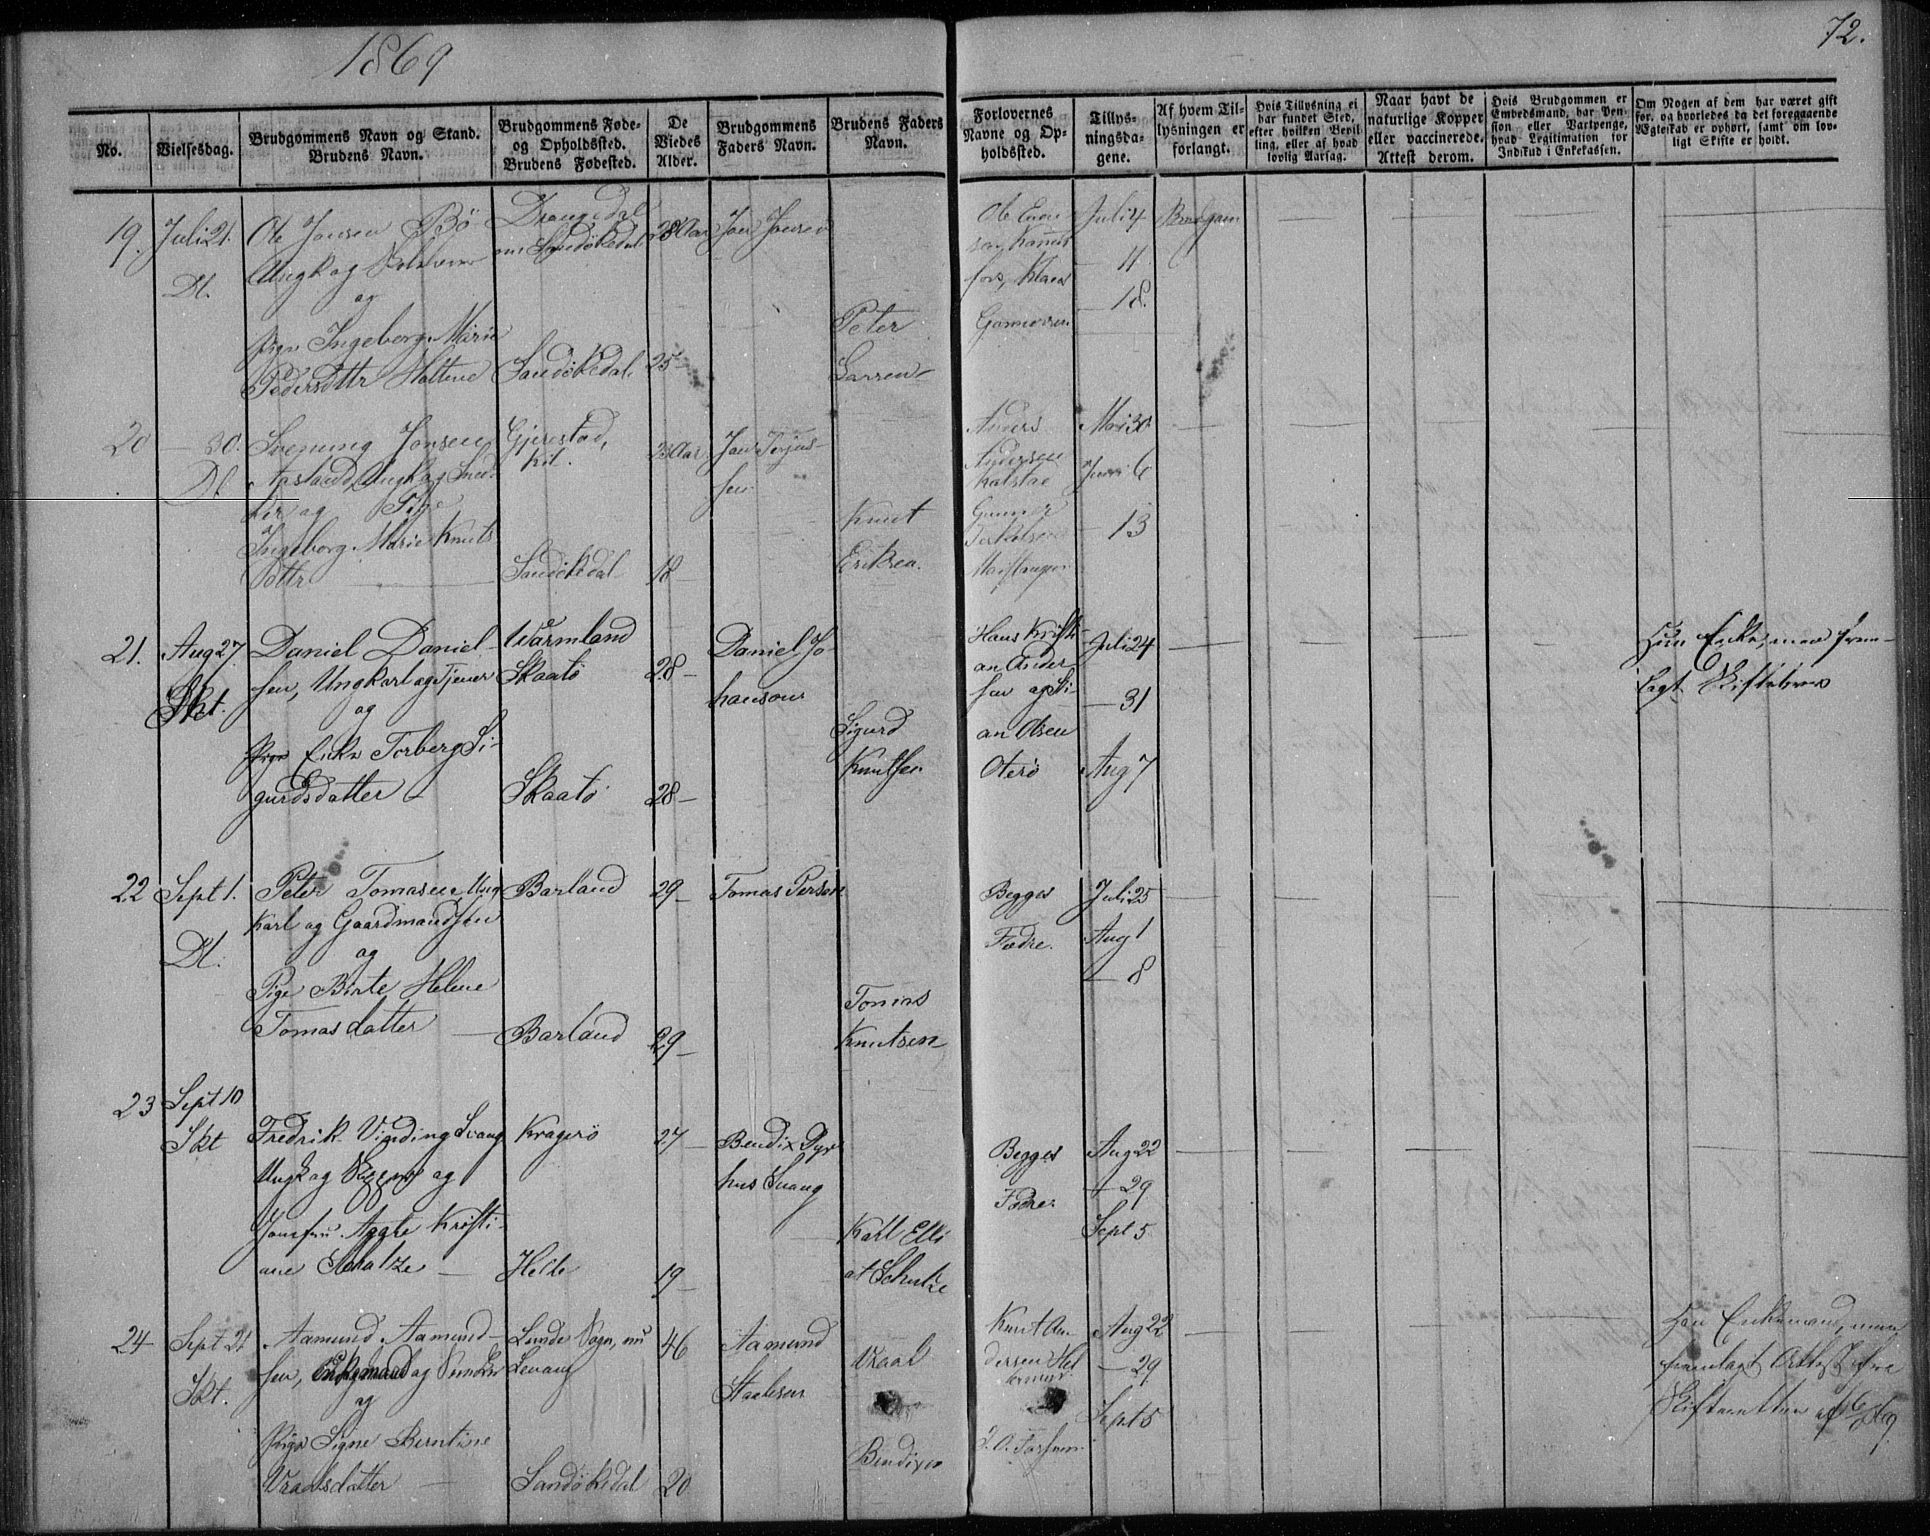 1869
72.
No.
Vielsesdag.
Brudgommens Navn og Stand.
Brudens Navn.
Brudgommens Føde-
og Opholdssted.
Brudens Fødested.
De
Viedes
Alder.
Brudgommens
Faders Navn.
Brudens Faders
Navn.
Forlovernes
Navne og Op-
holdssted.
Tillys-
ningsda-
gene.
Af hvem Til-
lysningen er
forlangt.
Hvis Tillysning ei
har fundet Sted,
efter hvilken Bevil-
ling, eller af hvad
lovlig Aarsag.
Naar havt de
naturlige Kopper
eller vaccinerede.
Attest derom.
Hvis Brudgommen er
Embedsmand, har Pen-
sion eller Vartpenge,
hvad Legitimation for
Indskud i Enkekassen.
Om Nogen af dem har været gift
før, og hvorledes da det foregaaende
Ægteskab er ophørt, samt om lov-
ligt Skifte er holdt.
19.
Juli 21.
Dl.
Ole Jonsen Bø
Ungk og
og
Pige Ingeborg Marie
Pedersdttr Holtene
Drangedal
nu Sandökedal
Sandökedal
28 Aar
25
Jon Jonsen
Peter
Larsen
Ole Ener
sen
Juli 4
11
18.
Brudgom
20
30.
Dl.
Svenung Jonsen
Apsland, Ungk og Sne-
ker og Pige
Ingeborg Marie Knuts
dttr
Gjerestad,
Kil.
Sandökedal
23 Aar
18
Jon Terjus-
sen
Knut
Eriksen.
Anders
Andersen
Gunner
Mai 30
Juni 6
13
21.
Aug 27.
Skt.
Daniel Daniel-
sen, Ungkarl og Tjener
og
Enke Torberg Si-
gurdsdatter
Wårmland
Skaatö
Skaatö
28
28
Daniel Jo-
hanson
Sigurd
Knutsen
Hans Kristi-
an Ander
sen og
an Olsen
Oterö
Juli 24
31
Aug 7
Hun Enke, men frem-
lagt Skiftebrev
22
Sept 1.
Dl.
Peter Tomasen Ung
Karl og Gaardmandssön
og
Pige Birte Helene
Tomasdatter
Barland
Barland
29
29
Tomas Persen
Tomas
Knutsen
Begges
Fædre.
Juli 25
Aug 1
8
23
Sept 10
Skt
Fredrik Vinding Svang
Ungk og og
Jomfru Agate Kristi-
ane Schultze
Kragerö
Helle
27
19
Bendix Dyr
hus Svang
Karl Elli
ot Schultze
Begges
Fædre
Aug 22
29
Sept 5
24
Sept 21
Skt.
Aamund Aamund-
sen, Enkemand og
og
Pige Signe Berntine
Vraalsdatter
Lunde Sogn, nu
Levang
Sandökedal
46
20
Aamund
Staalesen
Vraal
Bendixen
Knut An-
dersen Hel-
Aug 22
29
Sept 5
Han Enkemand, men
fremlagt Attest fra
Skifteretten af